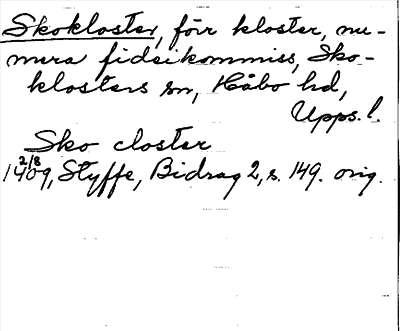 Skokloster, förr kloster, nu-
mera fideikommiss, Sko-
klosters sn, Håbo hd,
Upps. l.
Sko closter
2/8
1409, Styffe, Bidrag 2, s. 149. orig.